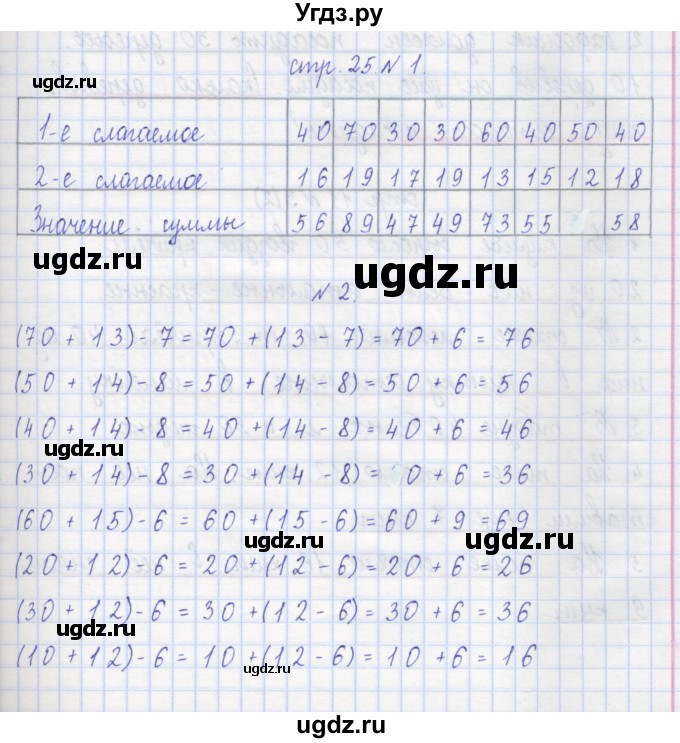 Угдз.ру
стр. 25 № 1.
ugdz.ru
1-е слагаемое 40 70 30 30 60 40 50 40
2-е слагаемое 16 19 17 19 13 15 12 18
Значение суммы 56 89 47 49 73 55 58
ugdz.ru
ugdz.ru
№ 2.
(70 + 13) - 7 = 70 + (13 - 7) = 70 + 6 = 76
(50 + 14) - 8 = 50 + (14 - 8) = 50 + 6 = 56
(40 + 14) - 8 = 40 + (14 - 8) = 40 + 6 = 46
ugdz.ru
(30 + 14) - 8 = 30 + (14 - 8) = 0 + 6 = 36
(60 + 15) - 6 = 60 + (15 - 6) = 60 + 9 = 69
ugdz.ru
ugdz.ru
(20 + 12) - 6 = 20 + (12 - 6) = 20 + 6 = 26
(30 + 12) - 6 = 30 + (12 - 6) = 30 + 6 = 36
ugdz.ru
(10 + 12) - 6 = 10 + (12 - 6) = 10 + 6 = 16
ugdz.ru
ugdz.ru